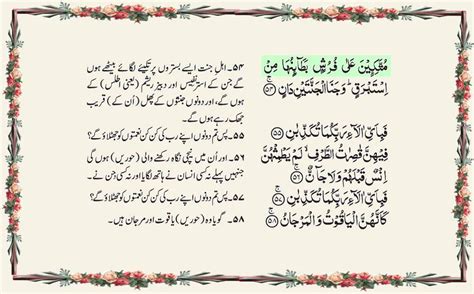 مُتَّكِـِٕیْنَ عَلٰی فُرُشٍۭ بَطَآىِٕنُهَا مِنْ
اِسْتَبْرَقٍ ؕ وَ جَنَا الْجَنَّتَیْنِ دَانٍ ۚ
فَبِاَیِّ اٰلَآءِ رَبِّكُمَا تُكَذِّبٰنِ
فِیْهِنَّ قٰصِرٰتُ الطَّرْفِ ۙ لَمْ یَطْمِثْهُنَّ
اِنْسٌ قَبْلَهُمْ وَ لَا جَآنٌّ ۚ
فَبِاَیِّ اٰلَآءِ رَبِّكُمَا تُكَذِّبٰنِ ۚ
كَاَنَّهُنَّ الْیَاقُوْتُ وَ الْمَرْجَانُ ۚ ۵۸
۵۴۔ اہلِ جنت ایسے بستروں پر تکیئے لگائے بیٹھے ہوں
گے جن کے استر نفیس اور دبیز ریشم (یعنی اطلس) کے
ہوں گے، اور دونوں جنتوں کے پھل (اُن کے) قریب
جھک رہے ہوں گے۔
۵۵۔ پس تم دونوں اپنے رب کی کن کن نعمتوں کو جھٹلاؤ گے؟
۵۶۔ اور اُن میں نیچی نگاہ رکھنے والی (حوریں) ہوں گی جنہیں
پہلے نہ کسی انسان نے ہاتھ لگایا اور نہ کسی جن نے۔
۵۷۔ پس تم دونوں اپنے رب کی کن کن نعمتوں کو جھٹلاؤ گے؟
۵۸۔ گویا وہ (حوریں) یاقوت اور مرجان ہیں۔